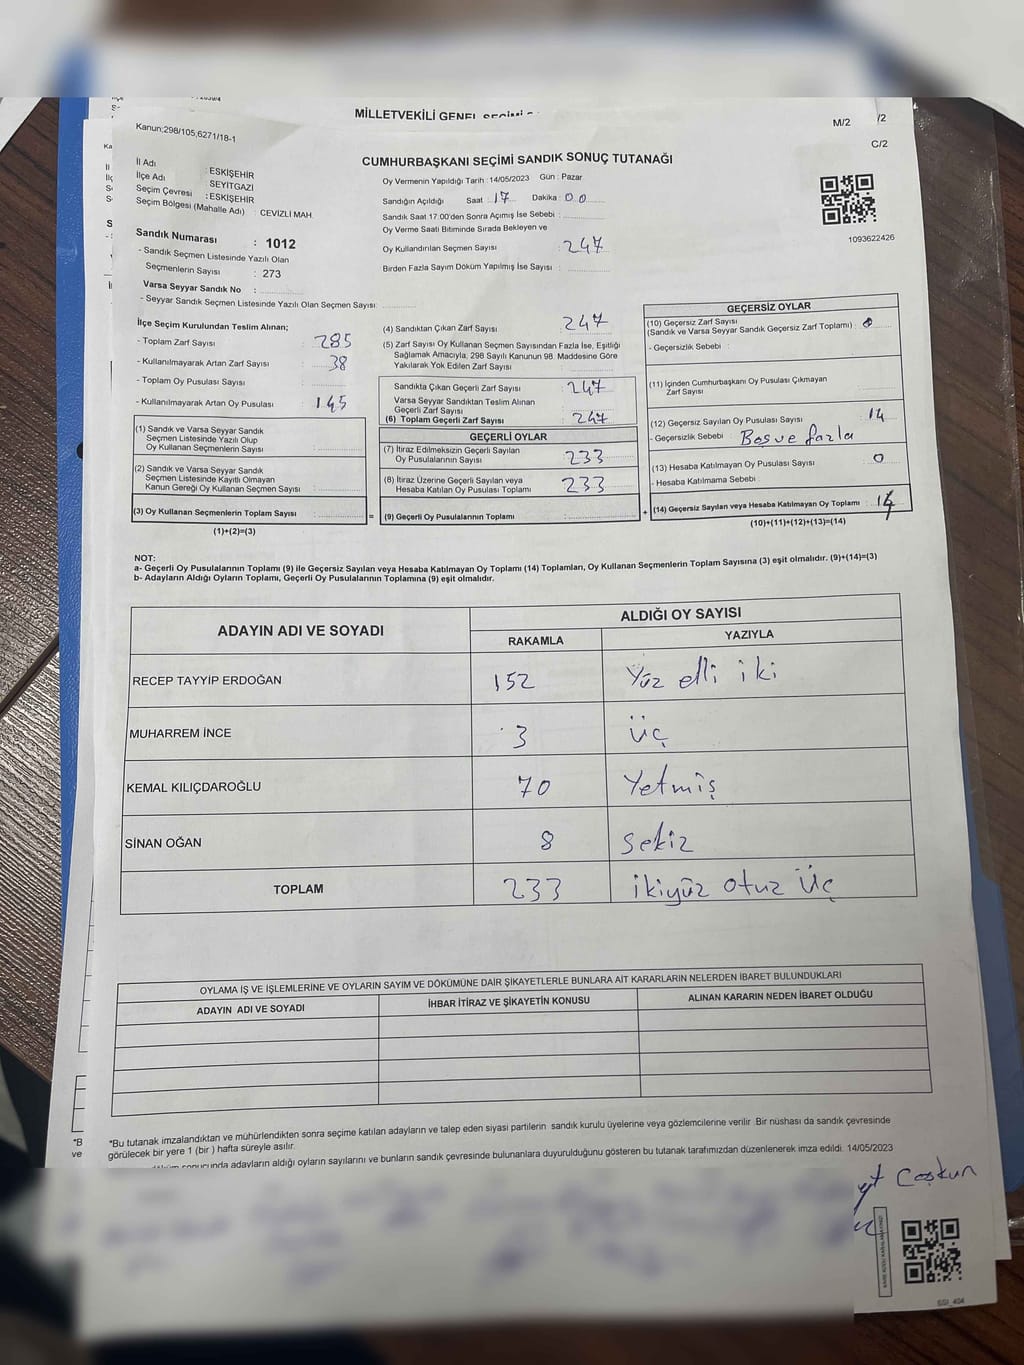 MİLLETVEKİLİ GENEL SEÇİMİ
Kanun:298/105,6271/18-1
M/2
/2
C/2
CUMHURBAŞKANI SEÇİMİ SANDIK SONUÇ TUTANAĞI
İl Adı : ESKİŞEHİR
İlçe Adı SEYİTGAZİ
Seçim Çevresi : ESKİŞEHİR
Seçim Bölgesi (Mahalle Adı) : CEVİZLİ MAH.
Sandık Numarası : 1012
- Sandık Seçmen Listesinde Yazılı Olan
Seçmenlerin Sayısı : 273
Varsa Seyyar Sandık No :
- Seyyar Sandık Seçmen Listesinde Yazılı Olan Seçmen Sayısı:
Oy Vermenin Yapıldığı Tarih : 14/05/2023 Gün : Pazar
Sandığın Açıldığı Saat : 17 Dakika : 00
Sandık Saat 17.00'den Sonra Açımış İse Sebebi :
Oy Verme Saati Bitiminde Sırada Bekleyen ve
Oy Kullandırılan Seçmen Sayısı : 247
Birden Fazla Sayım Döküm Yapılmış İse Sayısı :
1093622426
İlçe Seçim Kurulundan Teslim Alınan;
- Toplam Zarf Sayısı : 285
- Kullanılmayarak Artan Zarf Sayısı : 38
- Toplam Oy Pusulası Sayısı :
- Kullanılmayarak Artan Oy Pusulası : 145
(1) Sandık ve Varsa Seyyar Sandık
Seçmen Listesinde Yazılı Olup
Oy Kullanan Seçmenlerin Sayısı :
(2) Sandık ve Varsa Seyyar Sandık
Seçmen Listesinde Kayıtlı Olmayan
Kanun Gereği Oy Kullanan Seçmen Sayısı :
(3) Oy Kullanan Seçmenlerin Toplam Sayısı :
(1)+(2)=(3)
=
(4) Sandıktan Çıkan Zarf Sayısı : 247
(5) Zarf Sayısı Oy Kullanan Seçmen Sayısından Fazla İse, Eşitliği
Sağlamak Amacıyla, 298 Sayılı Kanunun 98. Maddesine Göre
Yakılarak Yok Edilen Zarf Sayısı :
Sandıkta Çıkan Geçerli Zarf Sayısı : 247
Varsa Seyyar Sandıktan Teslim Alınan
Geçerli Zarf Sayısı :
(6) Toplam Geçerli Zarf Sayısı : 247
GEÇERLİ OYLAR
(7) İtiraz Edilmeksizin Geçerli Sayılan
Oy Pusulalarının Sayısı : 233
(8) İtiraz Üzerine Geçerli Sayılan veya
Hesaba Katılan Oy Pusulası Toplamı : 233
(9) Geçerli Oy Pusulalarının Toplamı :
+
GEÇERSİZ OYLAR
(10) Geçersiz Zarf Sayısı
(Sandık ve Varsa Seyyar Sandık Geçersiz Zarf Toplamı) : 0
- Geçersizlik Sebebi :
(11) İçinden Cumhurbaşkanı Oy Pusulası Çıkmayan
Zarf Sayısı :
(12) Geçersiz Sayılan Oy Pusulası Sayısı : 14
- Geçersizlik Sebebi : Boş ve fazla
(13) Hesaba Katılmayan Oy Pusulası Sayısı : 0
- Hesaba Katılmama Sebebi :
(14) Geçersiz Sayılan veya Hesaba Katılmayan Oy Toplamı : 14
(10)+(11)+(12)+(13)=(14)
NOT:
a- Geçerli Oy Pusulalarının Toplamı (9) ile Geçersiz Sayılan veya Hesaba Katılmayan Oy Toplamı (14) Toplamları, Oy Kullanan Seçmenlerin Toplam Sayısına (3) eşit olmalıdır. (9)+(14)=(3)
b- Adayların Aldığı Oyların Toplamı, Geçerli Oy Pusulalarının Toplamına (9) eşit olmalıdır.
ADAYIN ADI VE SOYADI
ALDIĞI OY SAYISI
RAKAMLA YAZIYLA
RECEP TAYYİP ERDOĞAN 152 Yüz elli iki
MUHARREM İNCE 3 üç
KEMAL KILIÇDAROĞLU 70 Yetmiş
SİNAN OĞAN 8 sekiz
TOPLAM 233 ikiyüz otuz üç
OYLAMA İŞ VE İŞLEMLERİNE VE OYLARIN SAYIM VE DÖKÜMÜNE DAİR ŞİKAYETLERLE BUNLARA AİT KARARLARIN NELERDEN İBARET BULUNDUKLARI
ADAYIN ADI VE SOYADI İHBAR İTİRAZ VE ŞİKAYETİN KONUSU ALINAN KARARIN NEDEN İBARET OLDUĞU
*Bu tutanak imzalandıktan ve mühürlendikten sonra seçime katılan adayların ve talep eden siyasi partilerin sandık kurulu üyelerine veya gözlemcilerine verilir. Bir nüshası da sandık çevresinde
görülecek bir yere 1 (bir ) hafta süreyle asılır.
adayların aldığı oyların sayılarını ve bunların sandık çevresinde bulunanlara duyurulduğunu gösteren bu tutanak tarafımızdan düzenlenerek imza edildi. 14/05/2023
Coşkun